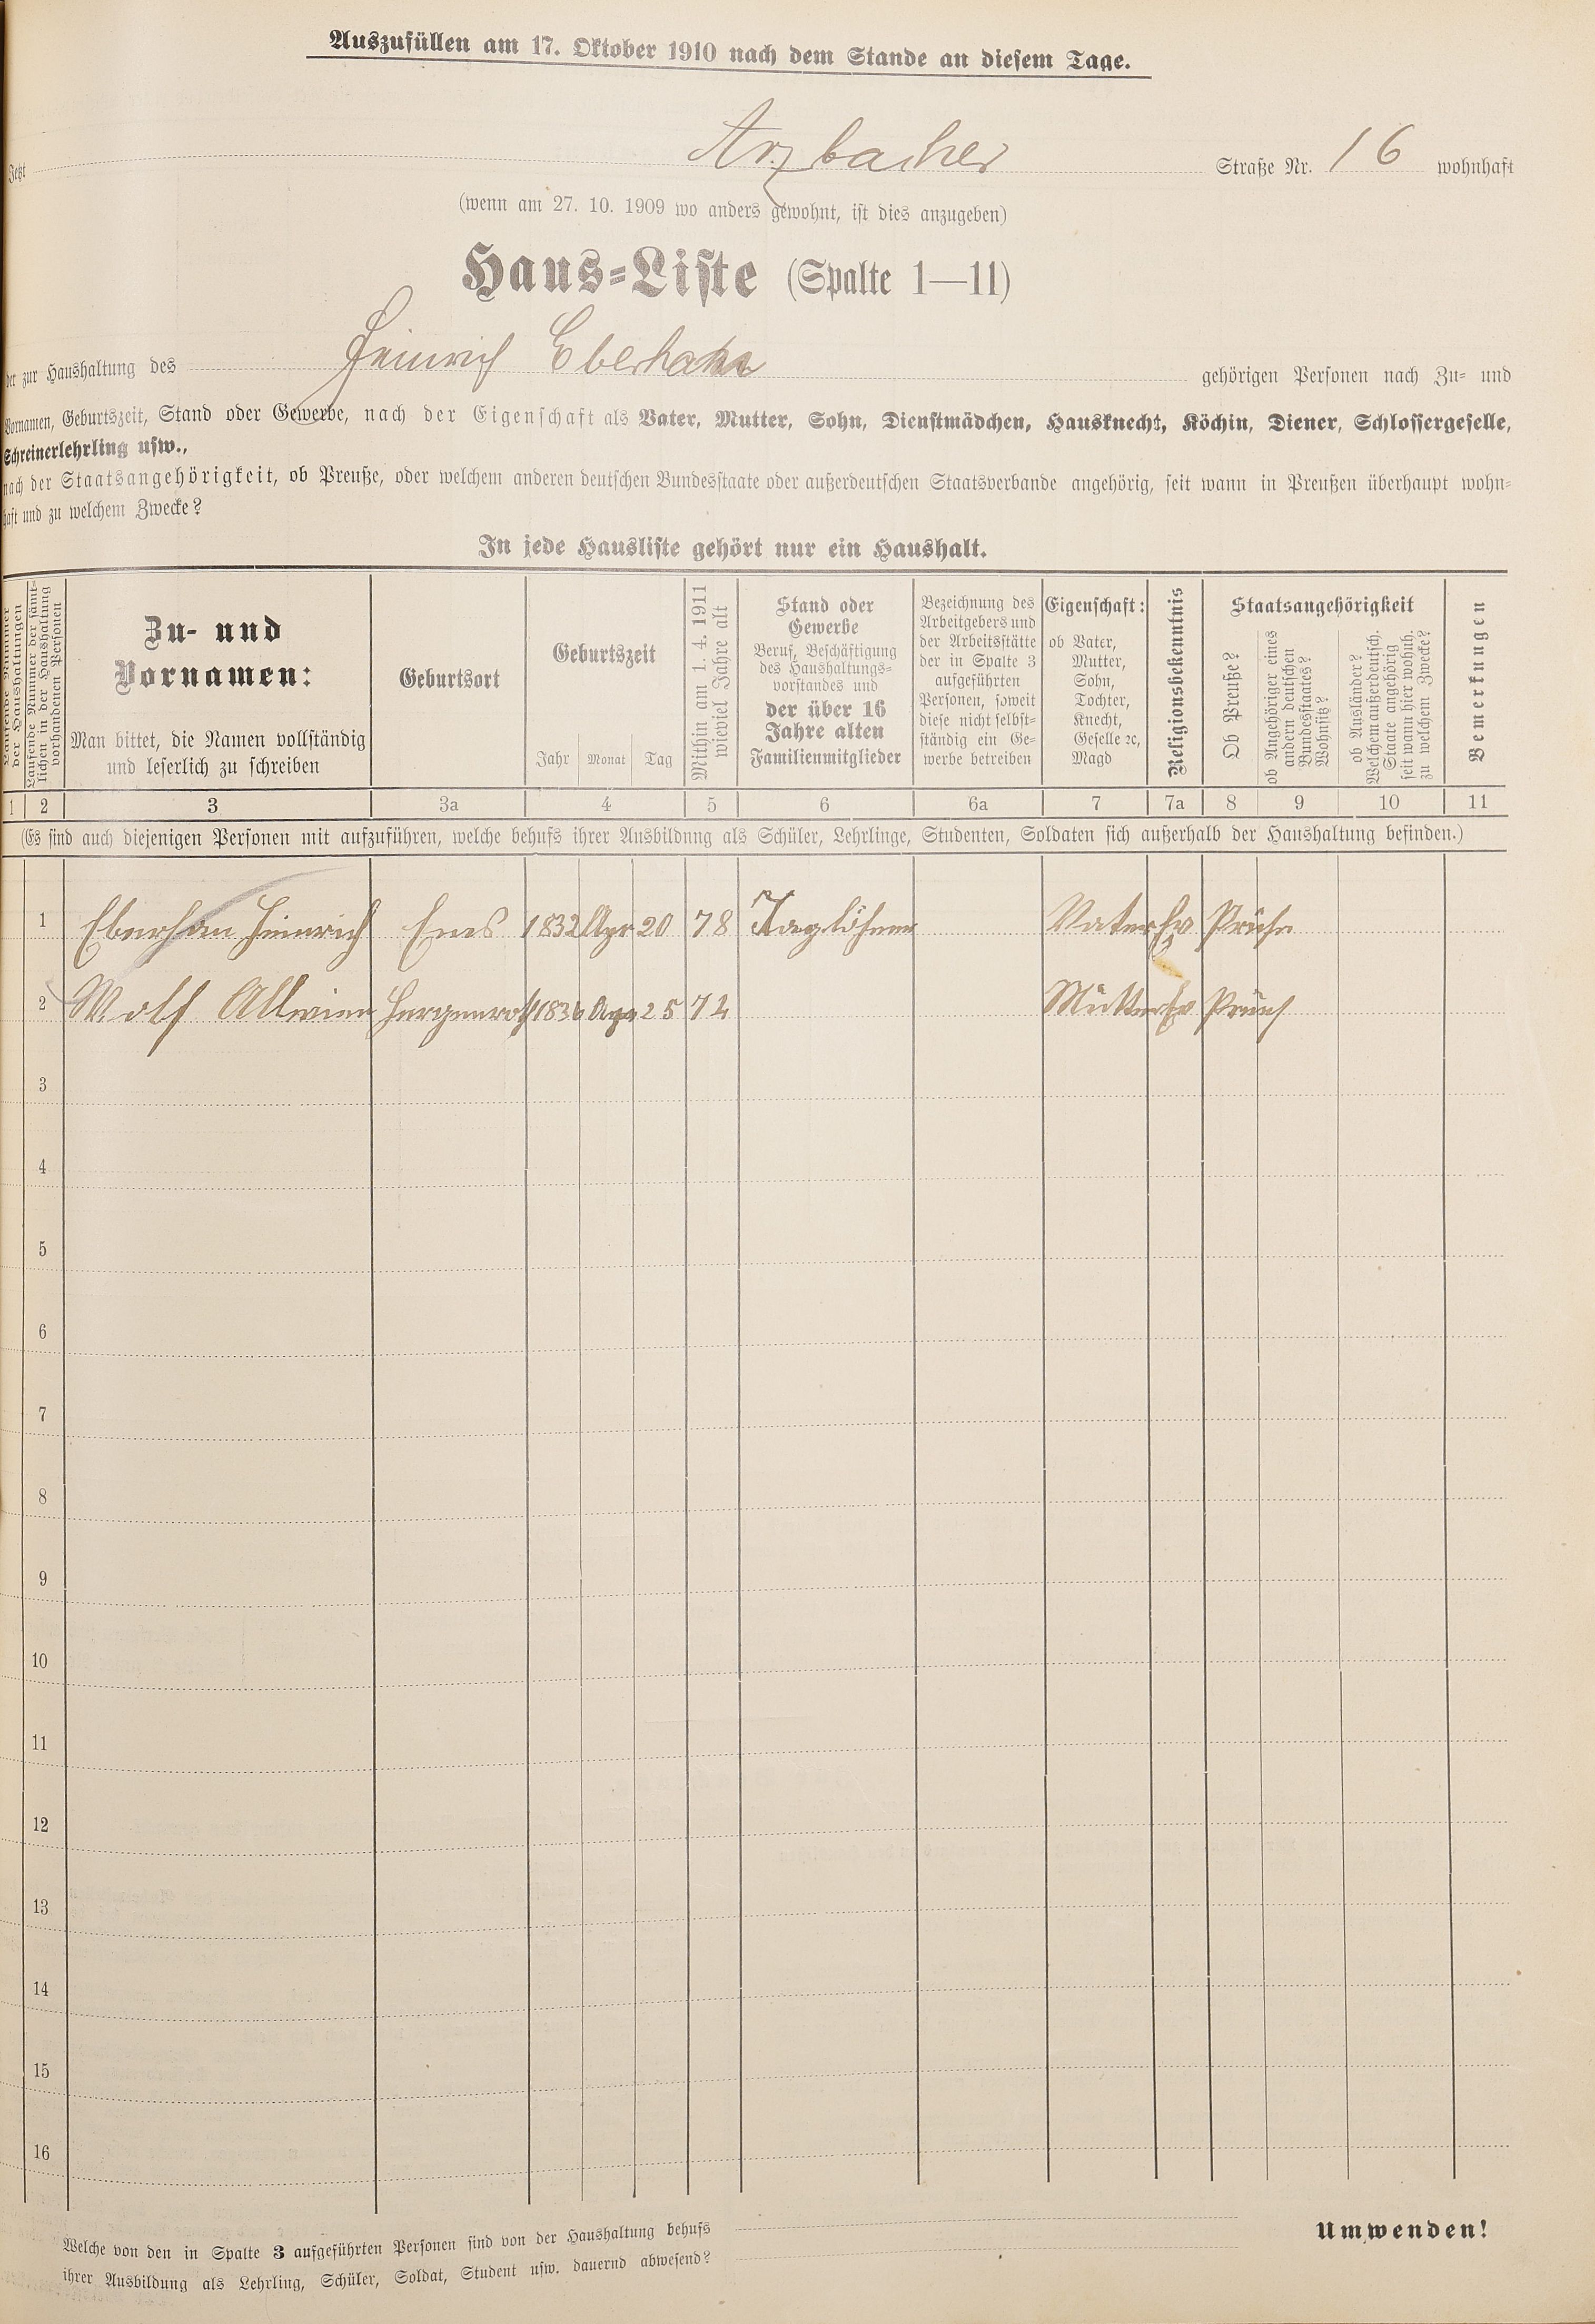 Auszufüllen am 17. Oktober 1910 nach dem Stande an diesem Tage.
Jetzt Arzbacher Straße Nr. 16 wohnhaft
(wenn am 27. 10. 1909 wo anders gewohnt, ist dies anzugeben)
Haus-Liste (Spalte 1—11)
der zur Haushaltung des Heinrich Eberhahn gehörigen Personen nach Zu- und
Vornamen, Geburtszeit, Stand oder Gewerbe, nach der Eigenschaft als Vater, Mutter, Sohn, Dienstmädchen, Hausknecht, Köchin, Diener, Schlossergeselle,
Schreinerlehrling usw.,
nach der Staatsangehörigkeit, ob Preuße, oder welchem anderen deutschen Bundesstaate oder außerdeutschen Staatsverbande angehörig, seit wann in Preußen überhaupt wohn-
haft und zu welchem Zwecke?
In jede Hausliste gehört nur ein Haushalt.
Laufende Nummer
der Haushaltungen
Laufende Nummer der sämt-
lichen in der Haushaltung
vorhandenen Personen
Zu- und
Vornamen:
Man bittet, die Namen vollständig
und leserlich zu schreiben
Geburtsort
Geburtszeit
Jahr Monat Tag
Mithin am 1. 4. 1911
wieviel Jahre alt
Stand oder
Gewerbe
Beruf, Beschäftigung
des Haushaltungs-
vorstandes und
der über 16
Jahre alten
Familienmitglieder
Bezeichnung des
Arbeitgebers und
der Arbeitsstätte
der in Spalte 3
aufgeführten
Personen, soweit
diese nicht selbst-
ständig ein Ge-
werbe betreiben
Eigenschaft:
ob Vater,
Mutter,
Sohn,
Tochter,
Knecht,
Geselle ꝛc,
Magd
Religionsbekenntnis
Staatsangehörigkeit
Ob Preuße?
ob Angehöriger eines
andern deutschen
Bundesstaates?
Wohnsitz?
ob Ausländer?
Welchem außerdeutsch.
Staate angehörig
seit wann hier wohnh.
zu welchem Zwecke?
Bemerkungen
1 2 3 3a 4 5 6 6a 7 7a 8 9 10 11
(Es sind auch diejenigen Personen mit aufzuführen, welche behufs ihrer Ausbildung als Schüler, Lehrlinge, Studenten, Soldaten sich außerhalb der Haushaltung befinden.)
1 Eberhan Heinrich Ems 1832 Apr 20 78 Taglöhner Vater Ev Prüße
2 Wolf Allwine Hergenroth 1836 25 74 Mutter Ev
3
4
5
6
7
8
9
10
11
12
13
14
15
16
Welche von den in Spalte 3 aufgeführten Personen sind von der Haushaltung behufs
ihrer Ausbildung als Lehrling, Schüler, Soldat, Student usw. dauernd abwesend?
Umwenden!